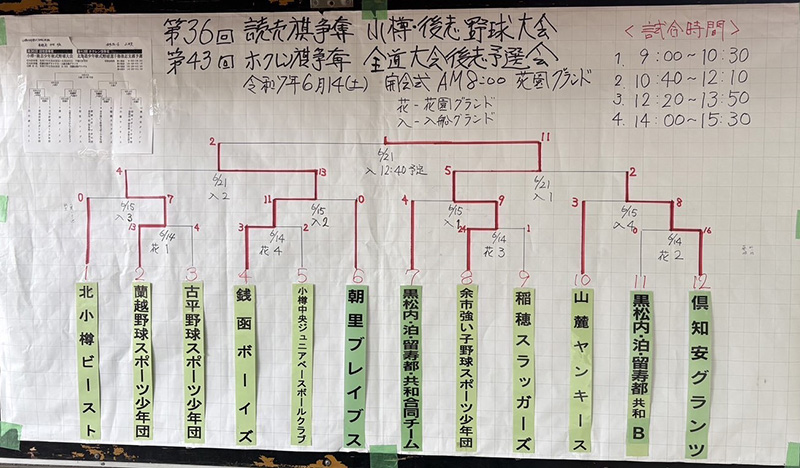 第36回 読売旗争奪 小樽・後志野球大会
第43回 ホクレン旗争奪 全道大会後志予選会
令和7年6月14(土) 開会式 AM8:00 花園グランド
花-花園グランド
入-入船グランド
<試合時間>
1. 9:00~10:30
2. 10:40~12:10
3. 12:20~13:50
4. 14:00~15:30
2 11
6/21
入 12:40予定
4 13 5 2
6/21
入2
6/21
入1
0 7 11 0 4 9 3 8
6/15
入3
6/15
入2
6/15
入1
6/15
入4
13 4 3 2 1 0 16
6/14
花1
6/14
花4
6/14
花3
6/14
花2
1 2 3 4 5 6 7 8 9 10 11 12
北小樽ビースト
蘭越野球スポーツ少年団
古平野球スポーツ少年団
銭函ボーイズ
小樽中央ジュニアベースボールクラブ
朝里ブレイブス
黒松内・泊・留寿都・共和合同チーム
余市強い子野球スポーツ少年団
稲穂スラッガーズ
山麓ヤンキース
黒松内・泊・留寿都 共和 B
倶知安グランツ